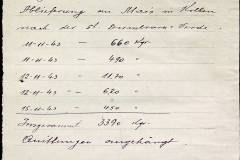 Ablieferung an Mais in Kolben
nach der St.
11-11-43 — 660 Kgr.
11-11-43 — 490 "
12-11-43 — 1170 "
12-11-43 — 620 "
15-11-43 — 450 "
Insgesammt 3390 Kgr.
Quittungen angehängt